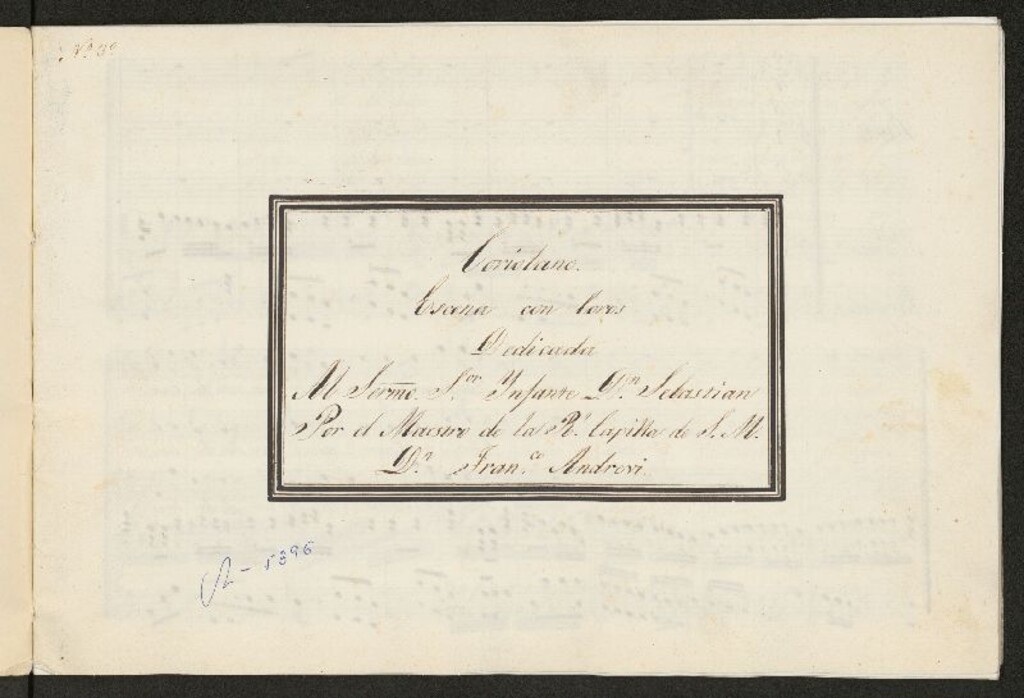 Coriolano.
Escena con Coros
Dedicada
Al Sermo. S.or Ynfante D.n Sebastian
Por el Maestro de la R.l Capilla de S. M.
D.n Fran.co Andrevi.
R-5896